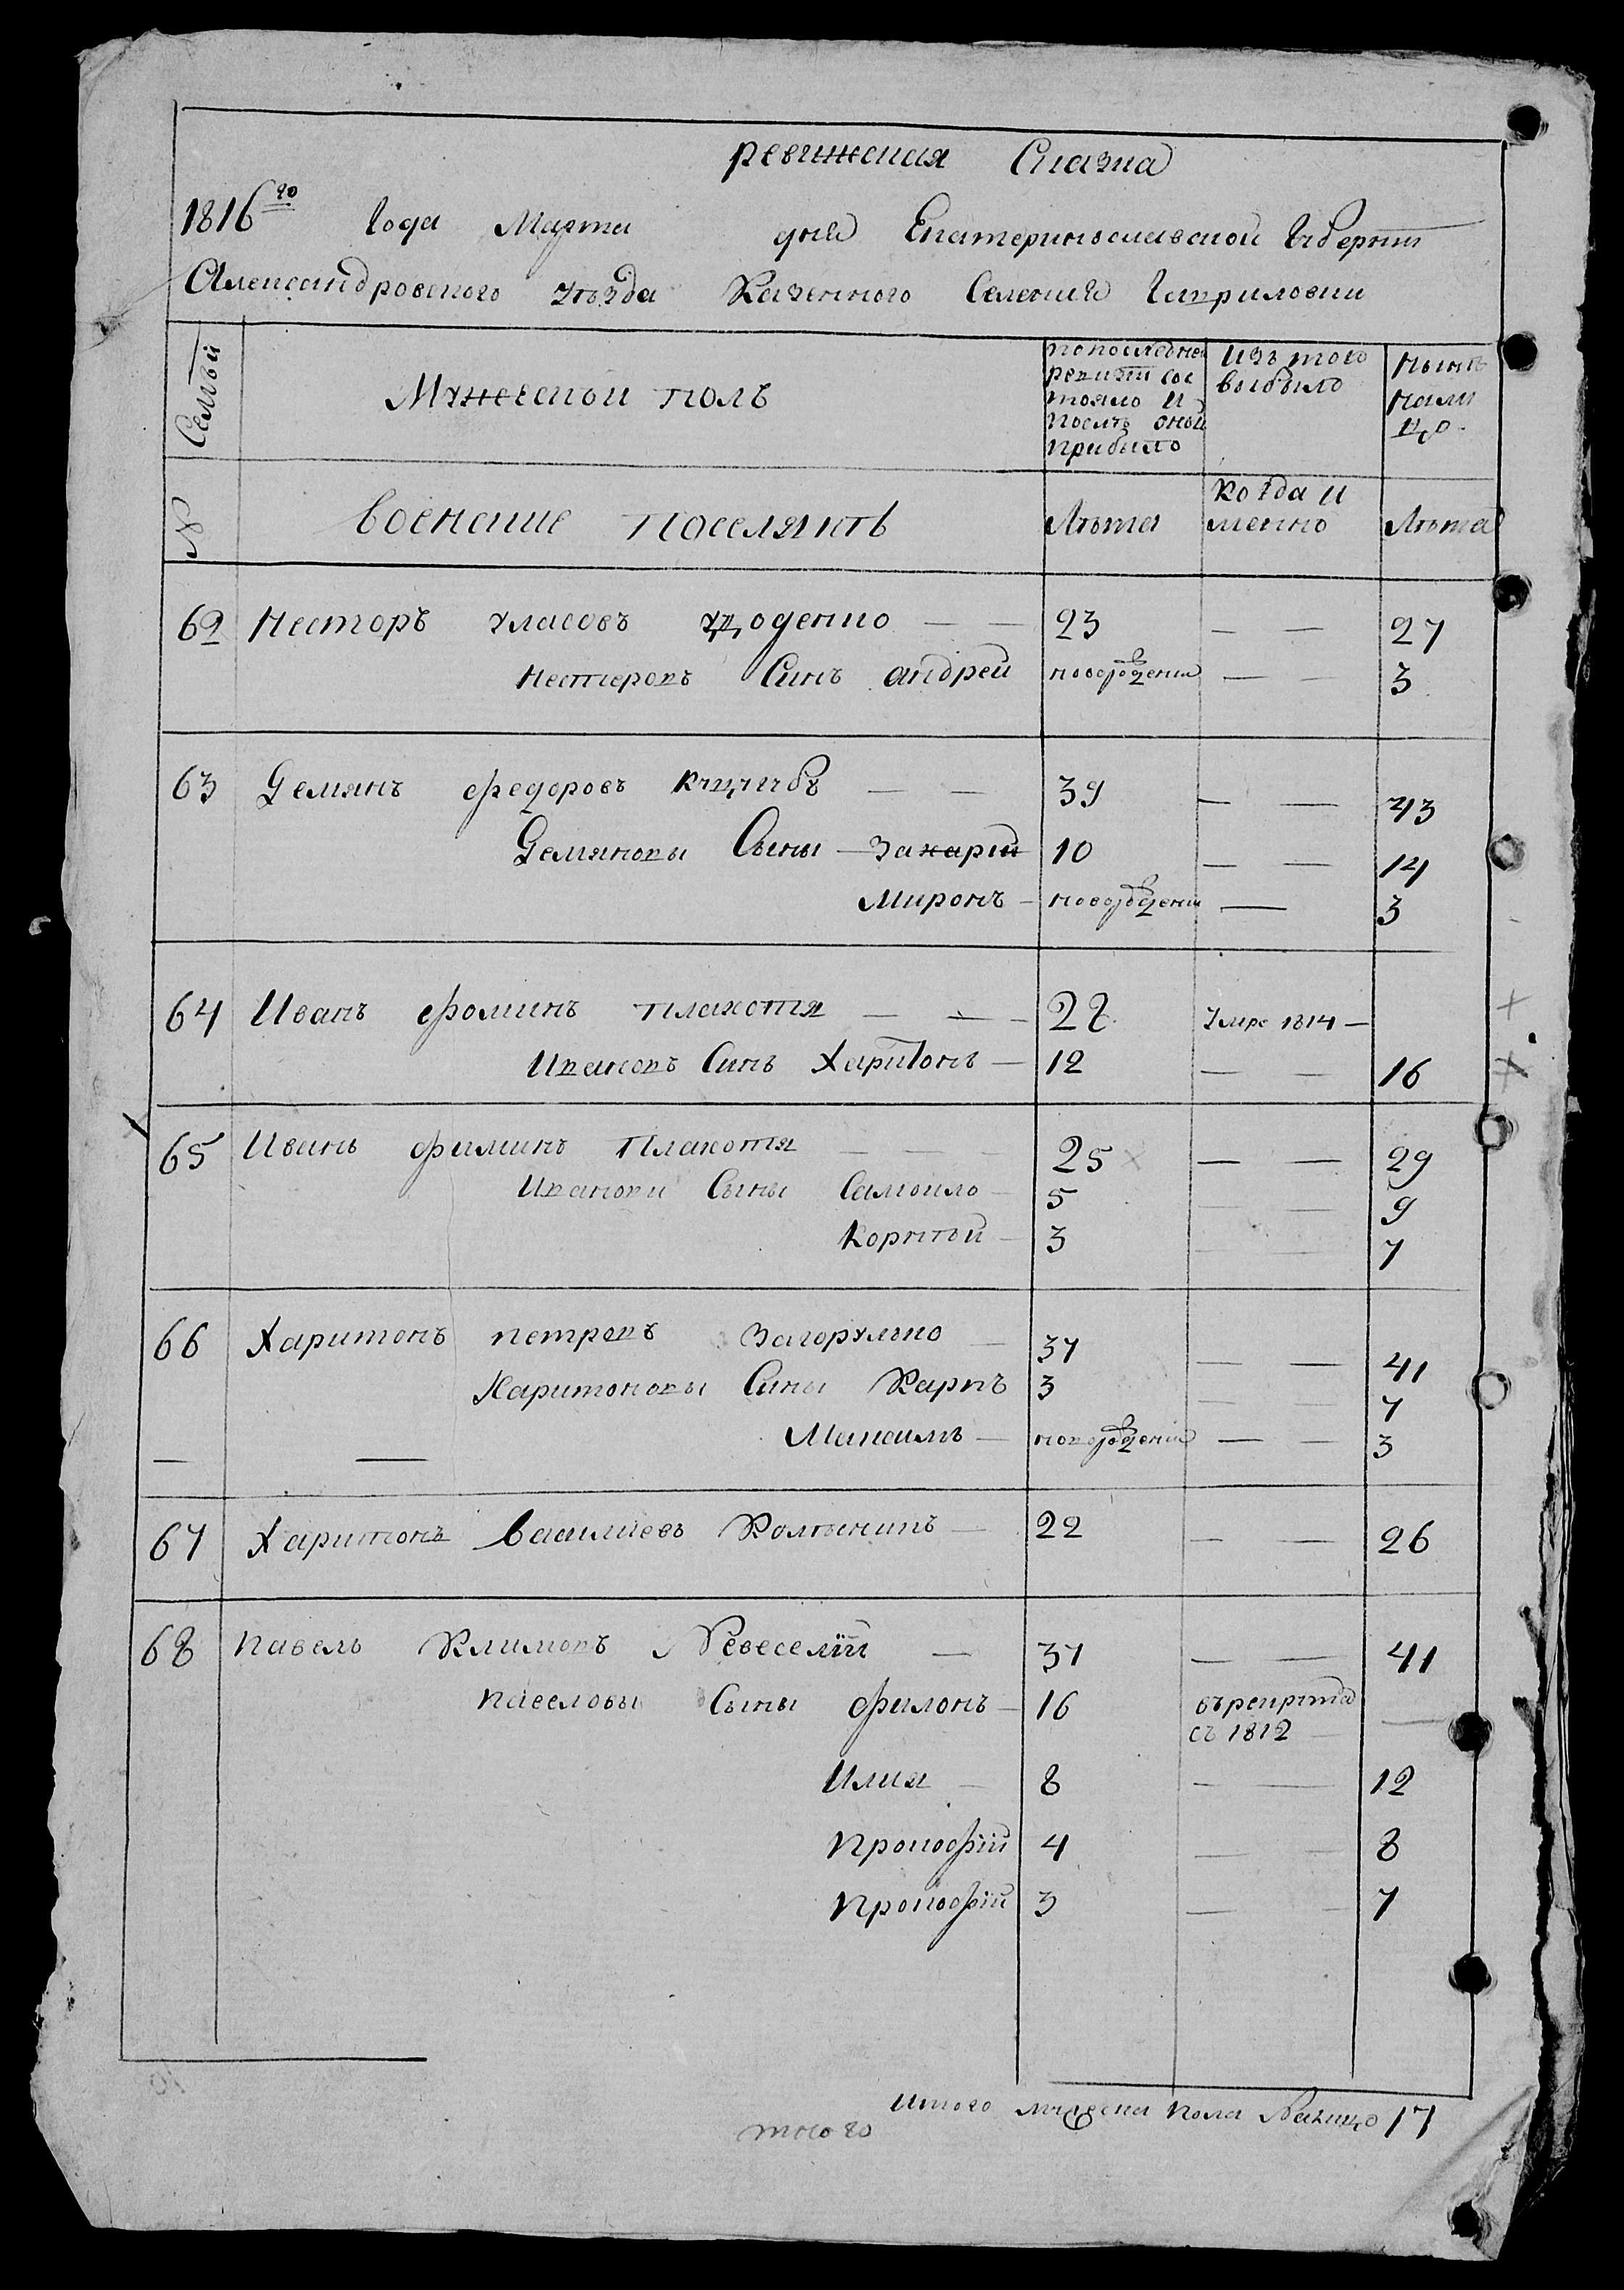 ревижская Сказка
1816го Года Марта дня Екатеринославской Губернии
Александровского уезда Казенного Селения Гавриловки
№ Семьи
Мужеской полъ
по последней ревизии состояло и после оной прибыло
Изъ того выбыло
Ныне на лицо
военные поселяне
Лета
Когда именно
Лета
62 Несторъ уласовъ — — 23 — — 27
Нестеровъ Синъ андрей новорожденный — — 3
63 Демянъ федоровъ — — 39 — — 43
Демяновы Сыны Захарий 10 — — 14
Миронъ — новорожденный — 3
64 Иванъ фоминъ плахотя — — 28 Умре 1814 —
Ивановъ Синъ Харитонъ — 12 — — 16
65 Иванъ фоминъ Плахотя — — — 25 — — 29
Иванови Сыны Самойло — 5 — — 9
Корнѣй — 3 — — 7
66 Харитонъ петровъ Загорулько — 37 — — 41
Харитоновы Сины Карпъ 3 — — 7
Максимъ — новорожденный — — 3
67 Харитонъ Василиевъ — 22 — — 26
68 павелъ Климовъ Невеселій — 37 — — 41
павловы Сыны филонъ — 16 въ рекрута съ 1812 —
Илия — 8 — — 12
Прокофій 4 — — 8
Прокофій 3 — — 7
Итого мужеска пола Налицо 17